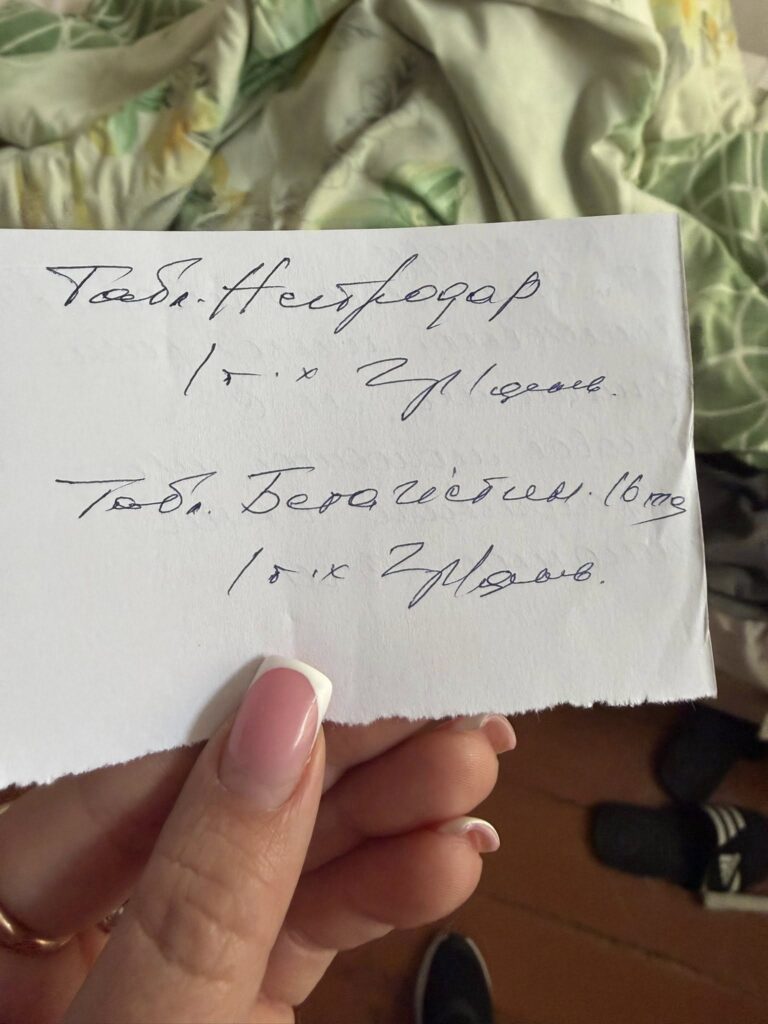 Табл. Нейродар
1 т. х 2 р/день.
Табл. Бетагістин. 16 mg
1 т. х 2 р/день.